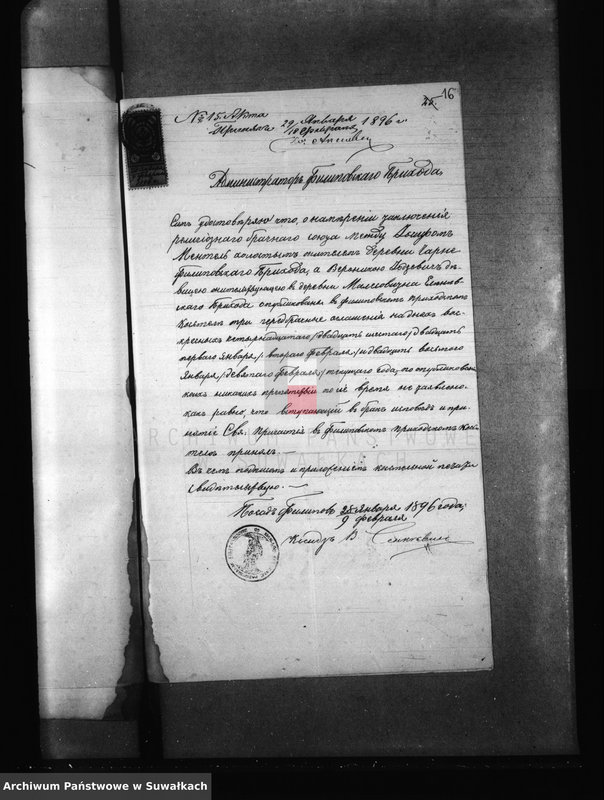 16
№ 15 Акта
Принялъ 29 Января 1896 г.
10 Февраля
Администраторъ Филиповскаго Прихода,
Симъ удостовѣряю что, о намѣреніи заключенія
религіознаго брачнаго союза между Іосифомъ
холостымъ жителемъ деревни Гарне
Филиповскаго Прихода, а Вероникою дѣ-
вицею жительствующею в деревни
скаго Прихода опубликованы в филиповскомъ приходскомъ
костелѣ три оглашенія на дняхъ вос-
кресныхъ четырнадцатого /двадцать шестаго/ двадцать
перваго Января /втораго февраля/ и двадцать восьмого
Января /девятаго февраля/ текущаго года, по опубликованіи
коихъ никакихъ препятствій по сіе время не заявлено,
какъ равно, что вступающій в бракъ исповѣдь и при-
частіе Св. в филиповскомъ приходскомъ кос-
телѣ принялъ.
В чемъ подписью и приложеніемъ костельной печати
свидѣтельствую. —
Посадъ Филиповъ 28 Января 1896 года
9 февраля
Ксендзъ В.
ARCHIWUM PAŃSTWOWE
W SUWAŁKACH
Archiwum Państwowe w Suwałkach